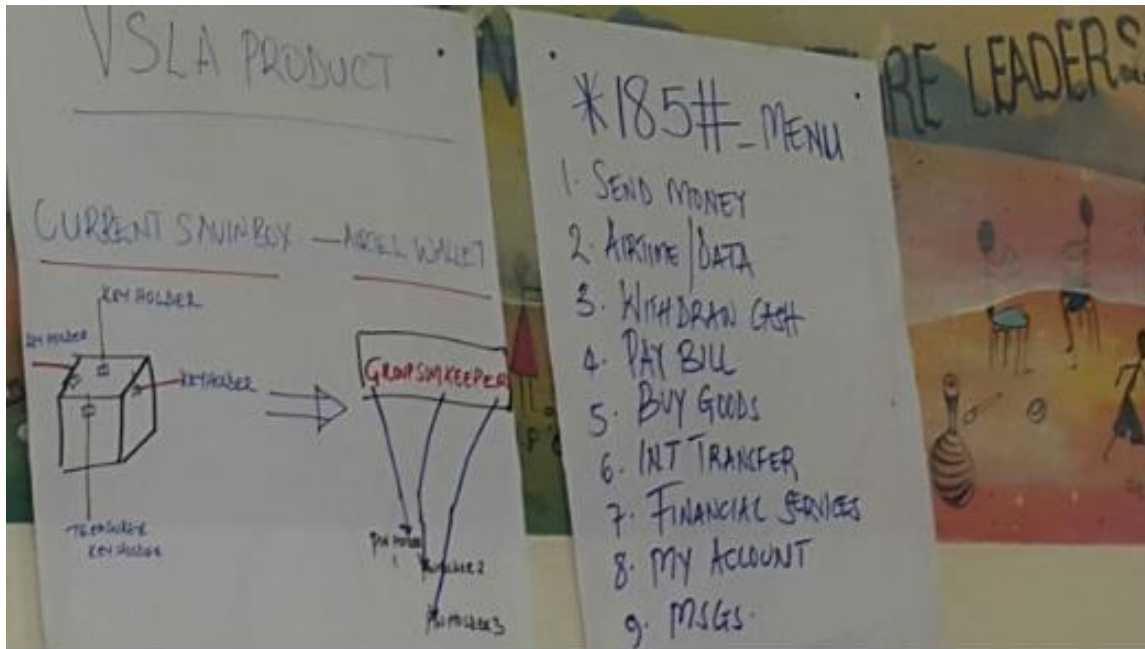 VSLA PRODUCT
CURRENT SAVINBOX — AIRTEL WALLET
KEY HOLDER
KEY HOLDER
KEYHOLDER
TREASURER
KEY HOLDER
GROUPSIMKEEPER
PIN HOLDER
1
PINHOLDER 2
PINHOLDER3
*185#_MENU
1. SEND MONEY
2. AIRTIME/DATA
3. WITHDRAW CASH
4. PAY BILL
5. BUY GOODS
6. INT TRANSFER
7. FINANCIAL SERVICES
8. MY ACCOUNT
9. MSGS.
RE LEADERS